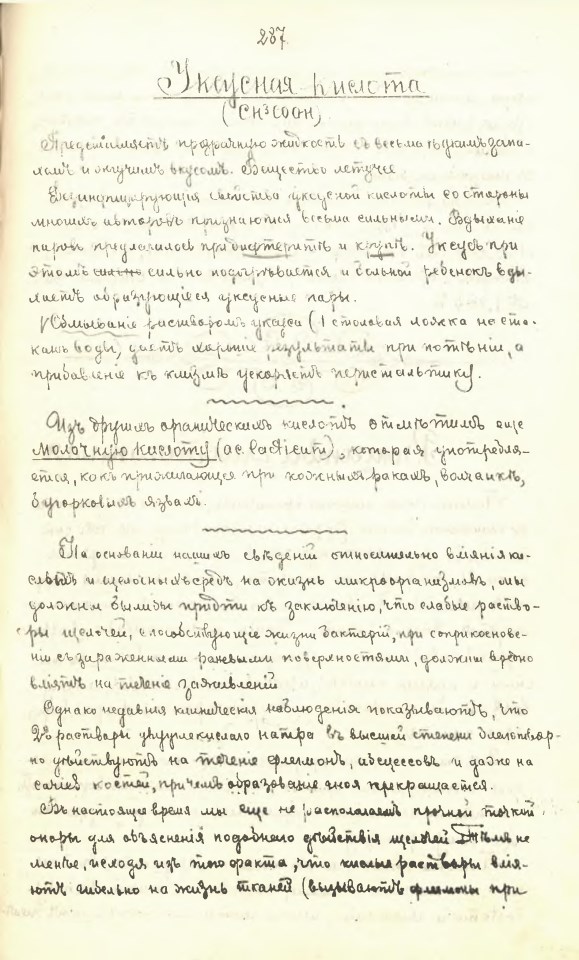 287.
Уксусная кислота
(CH³COOH)
Представляетъ прозрачную жидкость съ весьма ѣдкимъ запа-
хомъ и жгучимъ вкусомъ. Вещество летучее.
Дезинфицирующія свойства уксусной кислоты со стороны
многихъ авторовъ признаются весьма сильными. Вдыханіе
паровъ предлагалось при дифтеритѣ и крупѣ. Уксусъ при
этомъ сильно подогрѣвается и больной ребенокъ вды-
хаетъ образующіеся уксусные пары.
Обмываніе растворомъ уксуса (1 столовая ложка на ста-
канъ воды) даетъ хорошіе результаты при потѣніи, а
прибавленіе къ клизмѣ ускоряетъ перистальтику.
Изъ другихъ органическихъ кислотъ отмѣтимъ еще
молочную кислоту (ac. lacticum), которая употребля-
ется, какъ прижигающее при кожныхъ ракахъ, волчанкѣ,
бугорковыхъ язвахъ.
На основаніи нашихъ свѣдѣній относительно вліянія ки-
слыхъ и щелочныхъ средъ на жизнь микроорганизмовъ, мы
должны были бы придти къ заключенію, что слабые раство-
ры щелочей, способствующіе жизни бактерій, при соприкоснове-
ніи съ зараженными раневыми поверхностями, должны вредно
вліять на теченіе заживленій
Однако недавнія клиническія наблюденія показываютъ, что
2% растворы двууглекислаго натра въ высшей степени благотвор-
но дѣйствуютъ на теченіе флегмонъ, абсцессовъ и даже на
костей, причемъ образованіе гноя прекращается.
Въ настоящее время мы еще не располагаемъ прочной точкой
опоры для объясненія подобнаго дѣйствія щелочей. Тѣмъ не
менѣе, исходя изъ того факта, что кислые растворы влія-
ютъ гибельно на жизнь тканей (вызываютъ флегмоны при